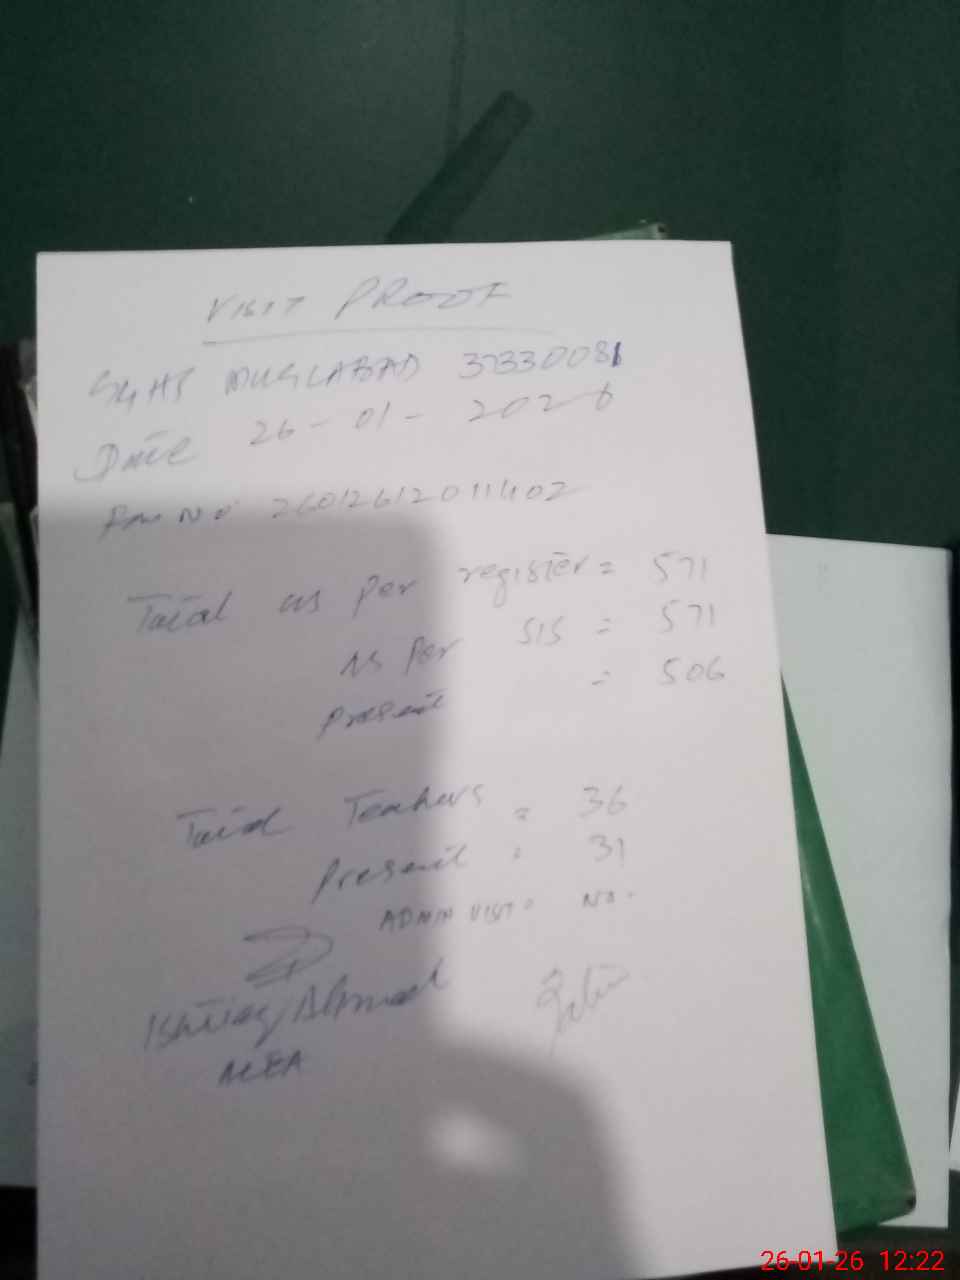 VISIT PROOF
MUGLABAD 37330081
Date 26-01-2026
No 26012612011402
Total as per register = 571
as per SIS = 571
present = 506
Total Teachers = 36
Present = 31
ADMIN VISIT = NO.
Ishtiaq Ahmad
MEA
26-01-26 12:22